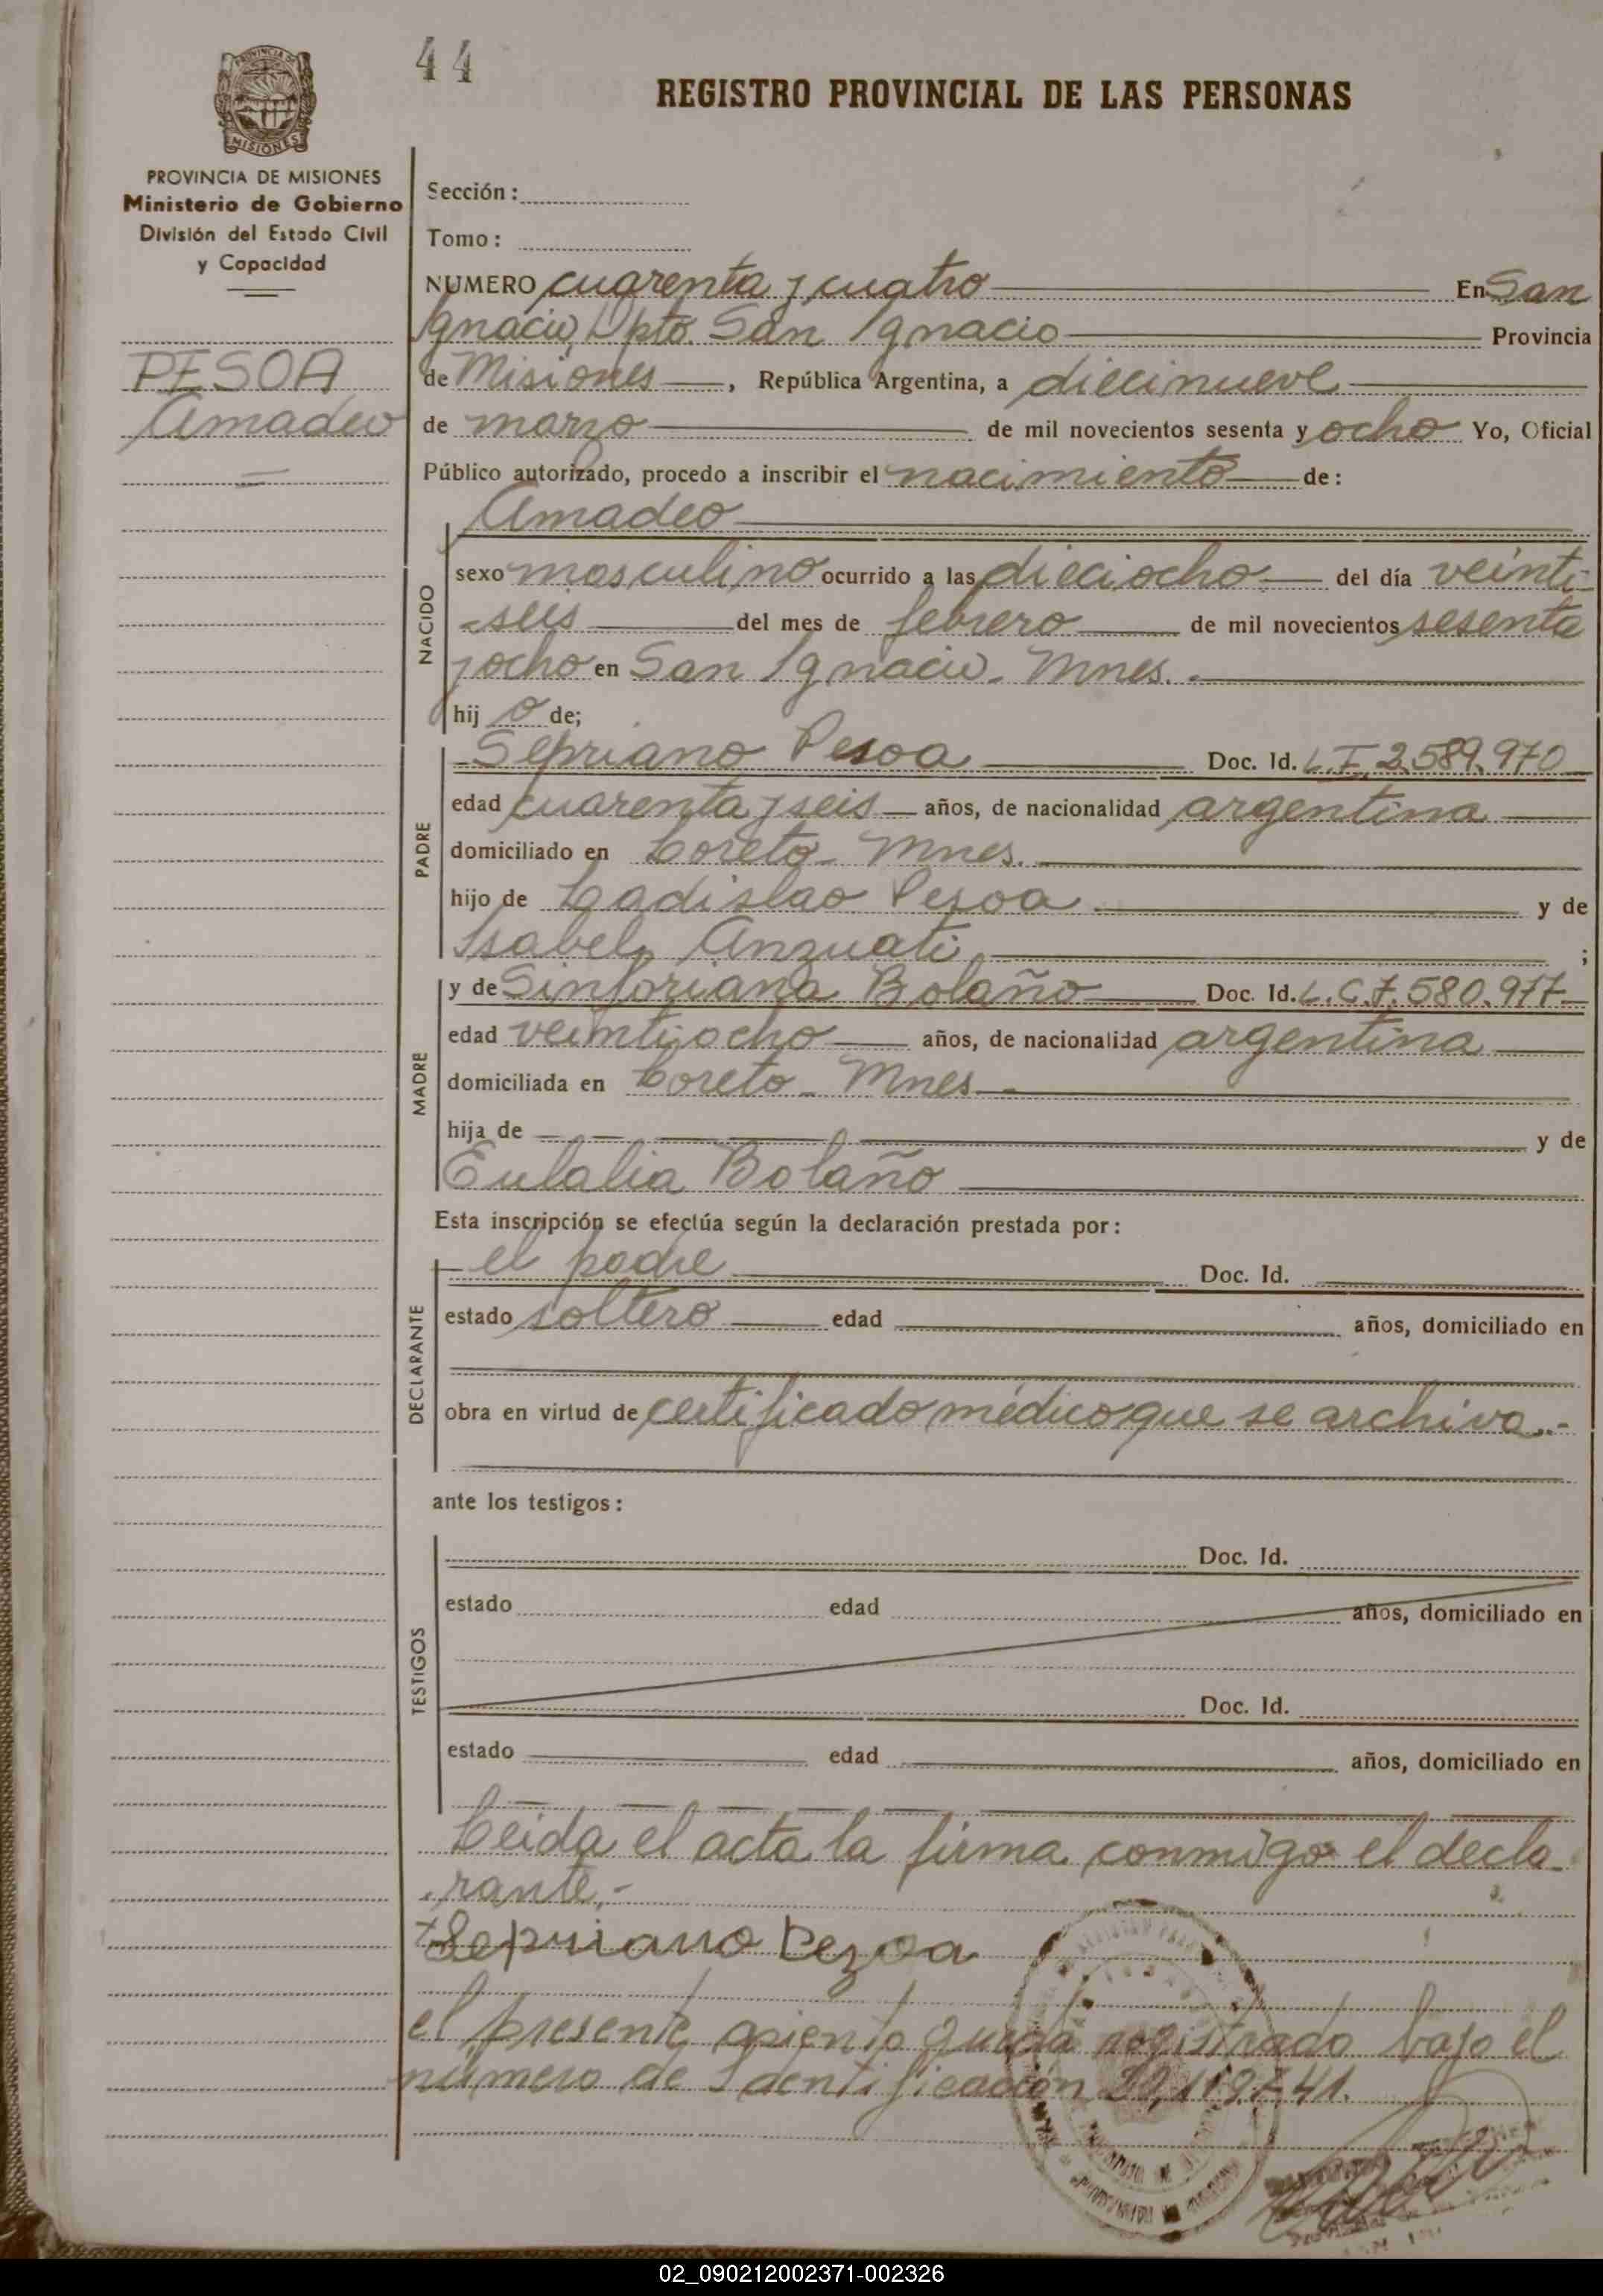 44
REGISTRO PROVINCIAL DE LAS PERSONAS
PROVINCIA DE MISIONES
MISIONES
PROVINCIA DE MISIONES
Ministerio de Gobierno
División del Estado Civil
y Capacidad
PESOA
Amadeo
Sección:
Tomo:
NUMERO cuarenta y cuatro En San
Ignacio, Dpto. San Ignacio Provincia
de Misiones, República Argentina, a diecinueve
de marzo de mil novecientos sesenta y ocho Yo, Oficial
Público autorizado, procedo a inscribir el nacimiento de:
NACIDO
Amadeo
sexo masculino ocurrido a las dieciocho del día veinti-
-seis del mes de febrero de mil novecientos sesenta
y ocho en San Ignacio - Mnes.
hij o de;
PADRE
Sepriano Pesoa Doc. Id. L.I. 2.589.970
edad cuarenta y seis años, de nacionalidad argentina
domiciliado en Loreto - Mnes.
hijo de Ladislao Pesoa y de
Isabel Anzuati ;
MADRE
y de Sinforiana Bolaño Doc. Id. L.C. 7.580.977
edad veintiocho años, de nacionalidad argentina
domiciliada en Loreto - Mnes.
hija de y de
Eulalia Bolaño
Esta inscripción se efectúa según la declaración prestada por:
DECLARANTE
el padre Doc. Id.
estado soltero edad años, domiciliado en
obra en virtud de certificado médico que se archiva.-
ante los testigos:
TESTIGOS
Doc. Id.
estado edad años, domiciliado en
Doc. Id.
estado edad años, domiciliado en
Leida el acta la firma conmigo el decla-
rante.-
Sepriano Pezoa
el presente asiento queda registrado bajo el
número de Identificación
02_090212002371-002326